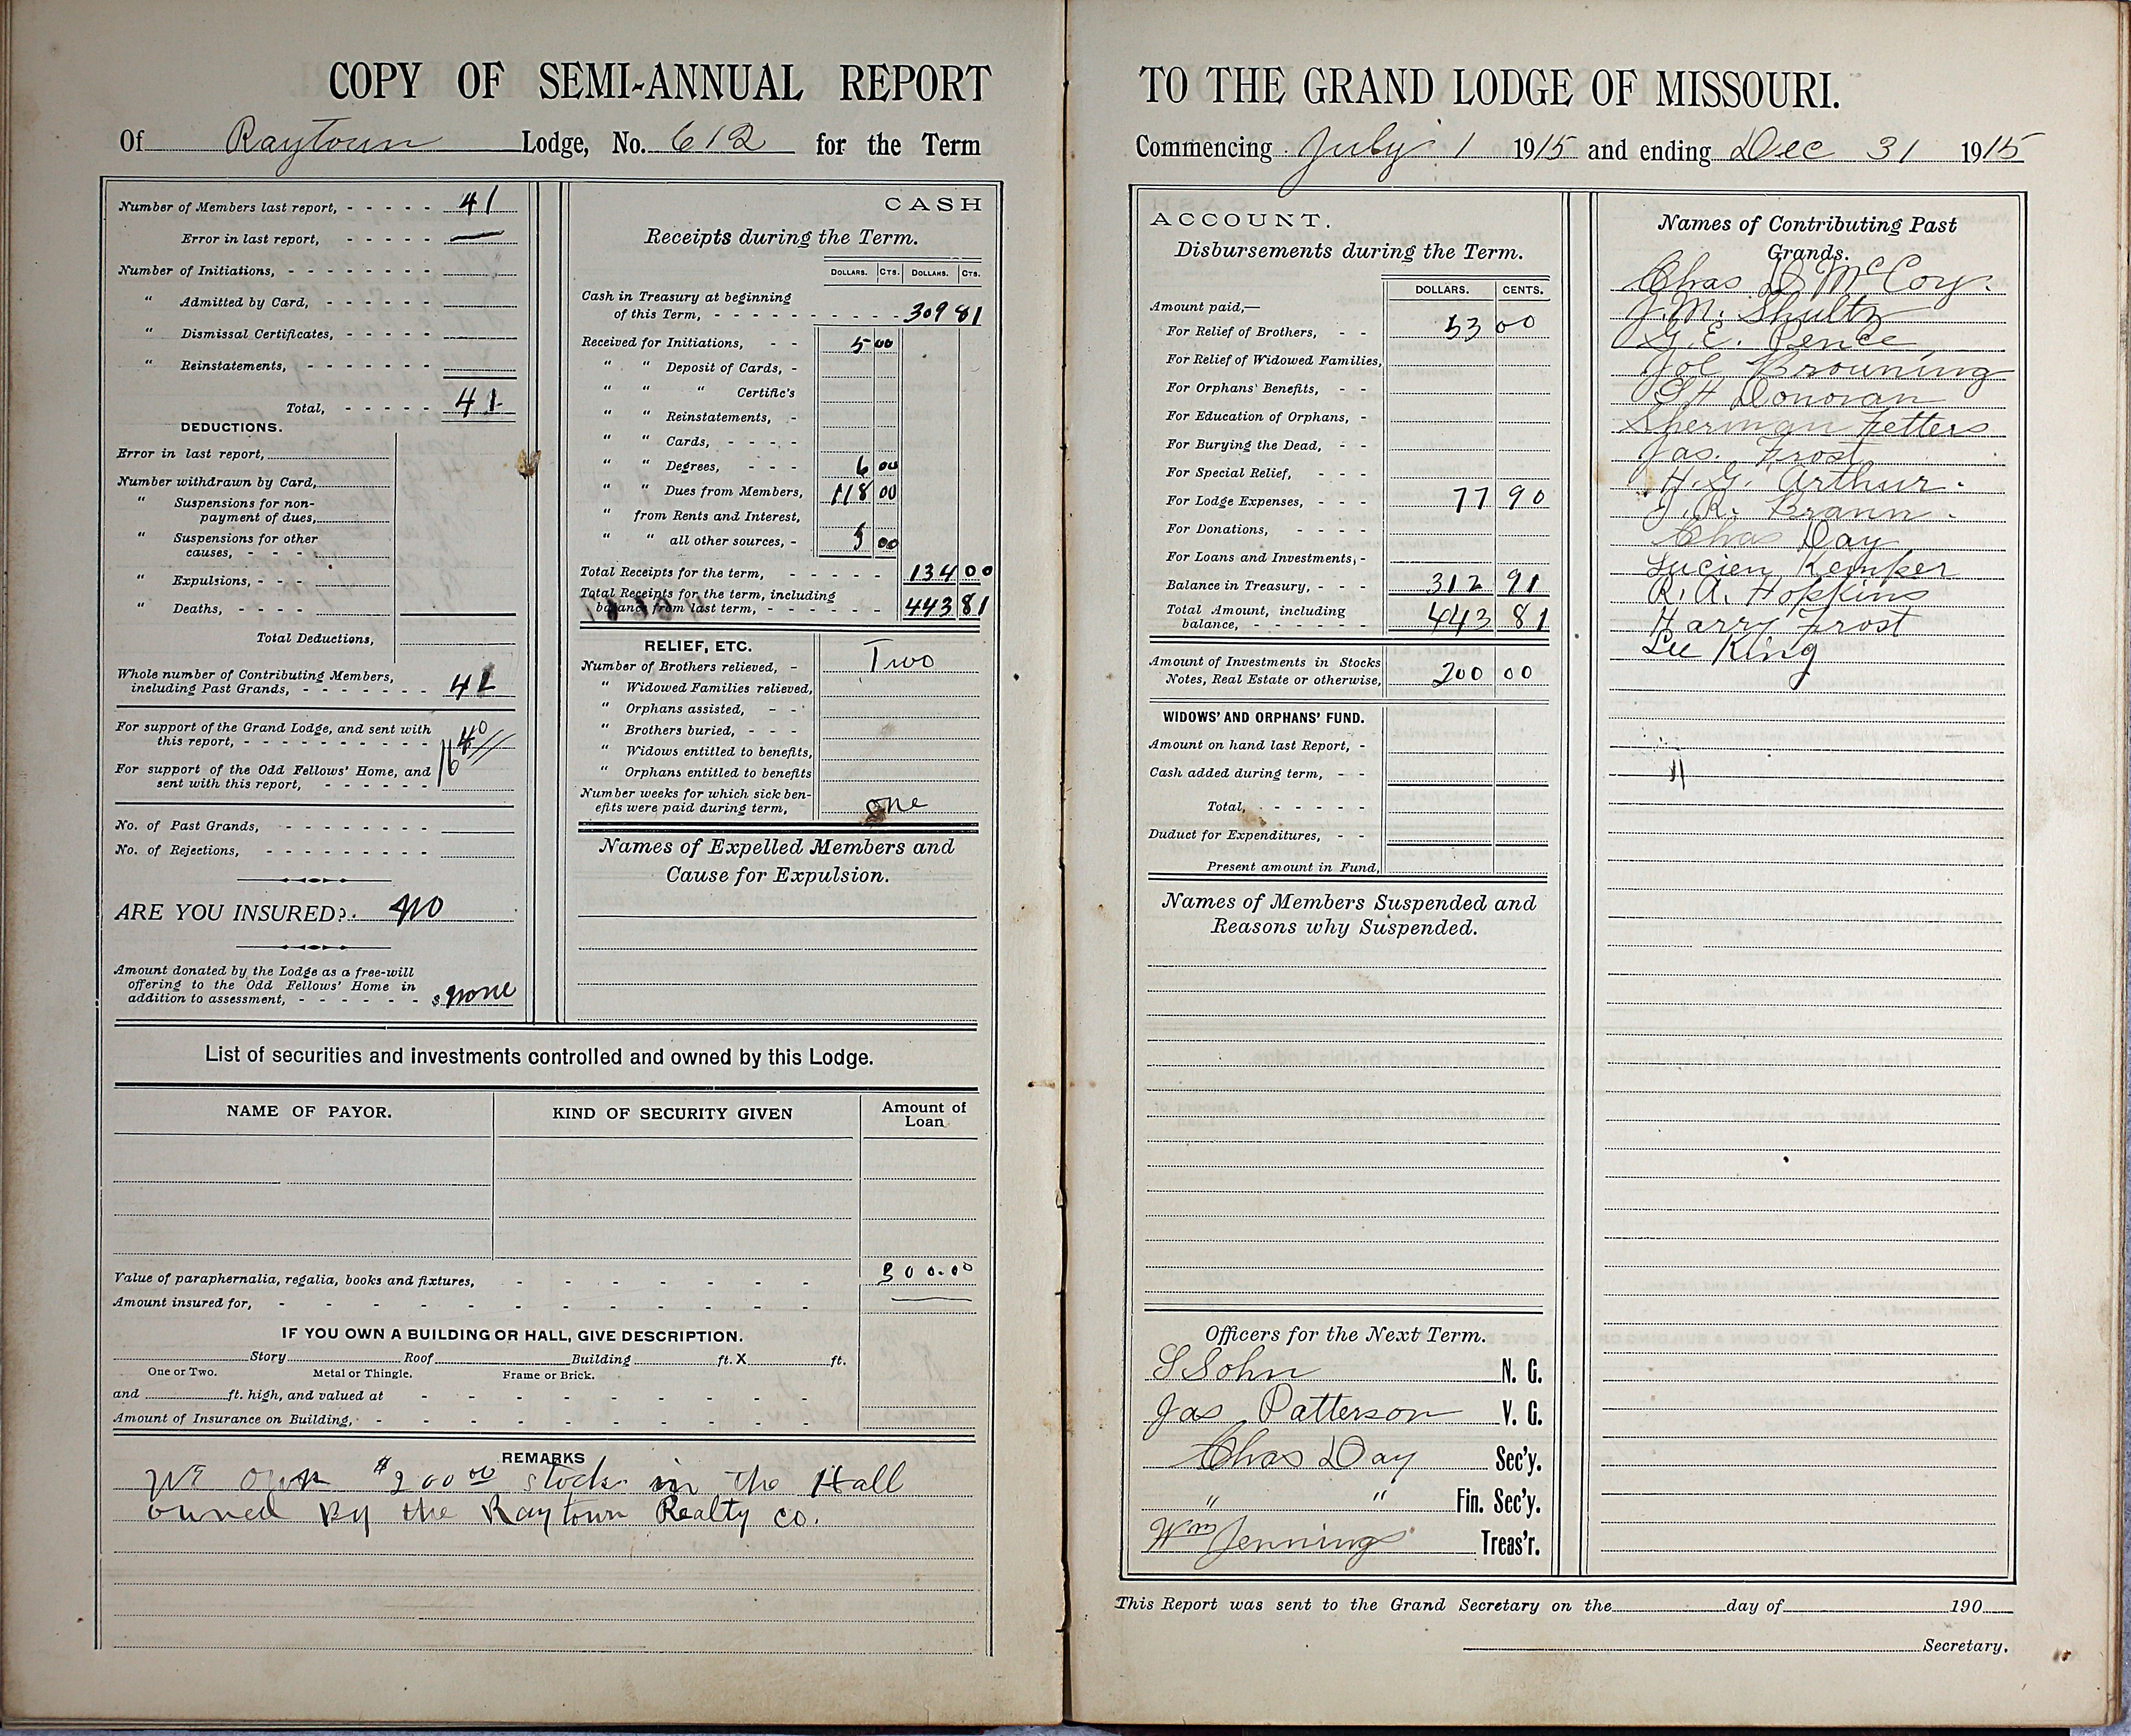 COPY OF SEMI-ANNUAL REPORT
Of Raytown Lodge, No. 612 for the Term
Number of Members last report, 41
Error in last report, —
Number of Initiations,
" Admitted by Card,
" Dismissal Certificates,
" Reinstatements,
Total, 41
DEDUCTIONS.
Error in last report,
Number withdrawn by Card,
" Suspensions for non-
payment of dues,
" Suspensions for other
causes,
" Expulsions,
" Deaths,
Total Deductions,
Whole number of Contributing Members,
including Past Grands, 41
For support of the Grand Lodge, and sent with
this report,
For support of the Odd Fellows' Home, and
sent with this report,
16 40
No. of Past Grands,
No. of Rejections,
ARE YOU INSURED? no
Amount donated by the Lodge as a free-will
offering to the Odd Fellows' Home in
addition to assessment, $ none
CASH
Receipts during the Term.
DOLLARS. CTS. DOLLARS. CTS.
Cash in Treasury at beginning
of this Term, 309 81
Received for Initiations, 5 00
" " Deposit of Cards,
" " " Certific's
" " Reinstatements,
" " Cards,
" " Degrees, 6 00
" " Dues from Members, 118 00
" from Rents and Interest,
" " all other sources, 5 00
Total Receipts for the term, 134 00
Total Receipts for the term, including
balance from last term, 443 81
RELIEF, ETC.
Number of Brothers relieved, Two
" Widowed Families relieved,
" Orphans assisted,
" Brothers buried,
" Widows entitled to benefits,
" Orphans entitled to benefits
Number weeks for which sick ben-
efits were paid during term, one
Names of Expelled Members and
Cause for Expulsion.
List of securities and investments controlled and owned by this Lodge.
NAME OF PAYOR. KIND OF SECURITY GIVEN Amount of
Loan
Value of paraphernalia, regalia, books and fixtures, 300.00
Amount insured for, —
IF YOU OWN A BUILDING OR HALL, GIVE DESCRIPTION.
Story Roof Building ft. X ft.
One or Two. Metal or Thingle. Frame or Brick.
and ft. high, and valued at
Amount of Insurance on Building,
REMARKS
We own $200 00 stock in the Hall
owned by the Raytown Realty co.
TO THE GRAND LODGE OF MISSOURI.
Commencing July 1 1915 and ending Dec 31 1915
ACCOUNT.
Disbursements during the Term.
DOLLARS. CENTS.
Amount paid,—
For Relief of Brothers, 53 00
For Relief of Widowed Families,
For Orphans' Benefits,
For Education of Orphans,
For Burying the Dead,
For Special Relief,
For Lodge Expenses, 77 90
For Donations,
For Loans and Investments,
Balance in Treasury, 312 91
Total Amount, including
balance, 443 81
Amount of Investments in Stocks
Notes, Real Estate or otherwise, 200 00
WIDOWS' AND ORPHANS' FUND.
Amount on hand last Report,
Cash added during term,
Total,
Duduct for Expenditures,
Present amount in Fund,
Names of Members Suspended and
Reasons why Suspended.
Officers for the Next Term.
S Sohn N. G.
Jas Patterson V. G.
Chas Day Sec'y.
" " Fin. Sec'y.
Wm Jennings Treas'r.
Names of Contributing Past
Grands.
Chas D McCoy.
J.M. Shultz
G.E. Pence,
Joe Browning
G H Donovan
Sherman Fetters
Jas. Frost
H.G. Arthur.
J.R. Brann.
Chas Day
Lucien Kemper
R.A. Hopkins
Harry Frost
Lee King
This Report was sent to the Grand Secretary on the day of 190
Secretary.